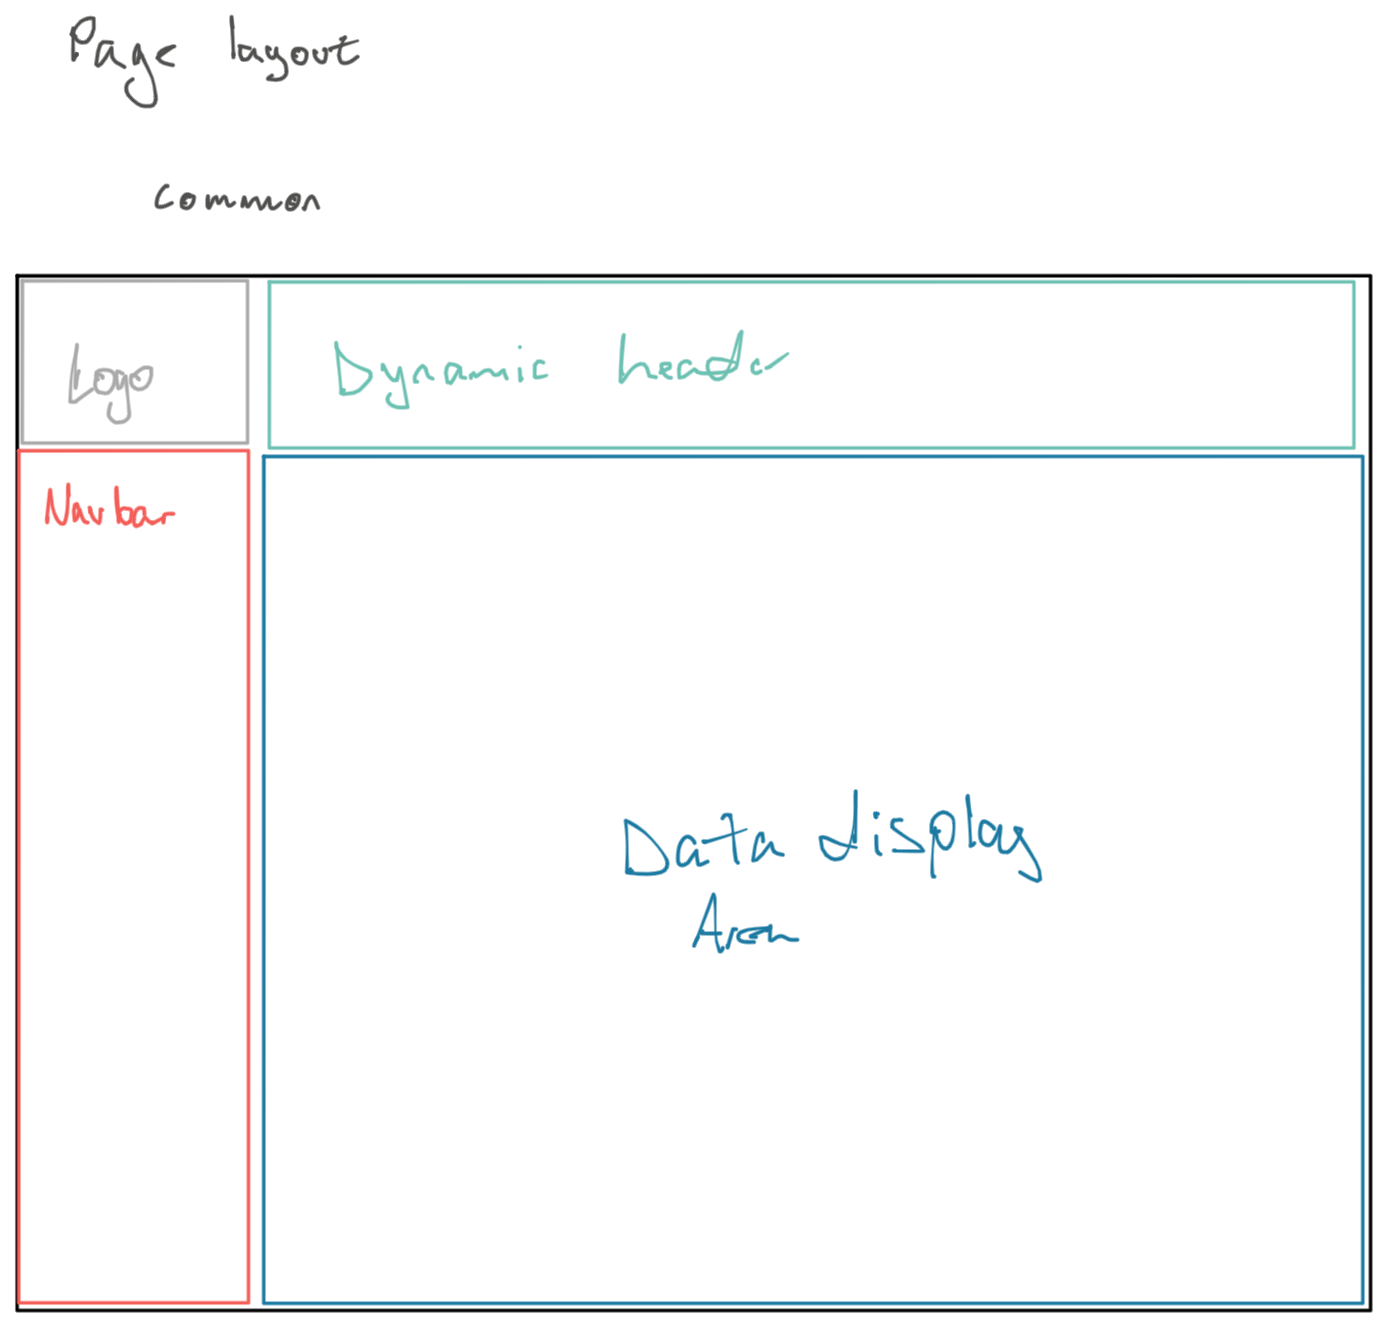 Page layout
Common
Logo
Dynamic header
Navbar
Data display
Area